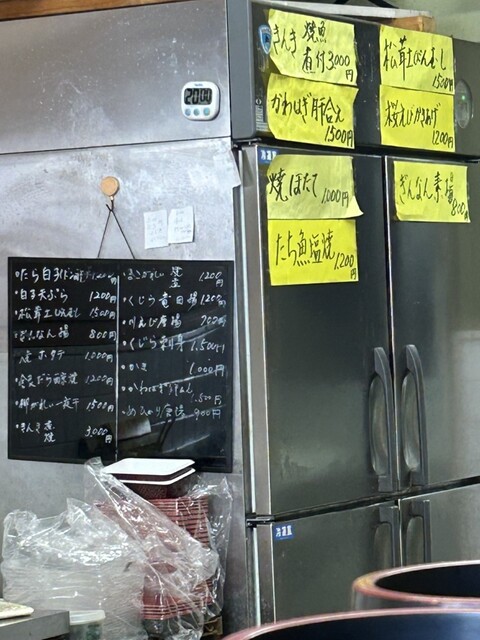 きんき 焼魚
煮付 3000円
かわはぎ肝合え
1500円
焼ほたて
1000円
たち魚塩焼
1200円
松茸土びんむし
1500円
桜えびかきあげ
1200円
ぎんなん素揚
800円
冷凍室
冷蔵室
20:00
白子天ぷら 1200円
松茸土びんむし 1500円
ぎんなん揚 800円
焼ホタテ 1,000円
銀だら西京焼 1200円
柳がれい一夜干 1500円
きんき 煮 焼 3,000円
1,200円
くじら竜田揚 1200円
川えび唐揚 700円
くじら刺身 1,500円
かき 1,000円
1,500円
めひかり唐揚 900円